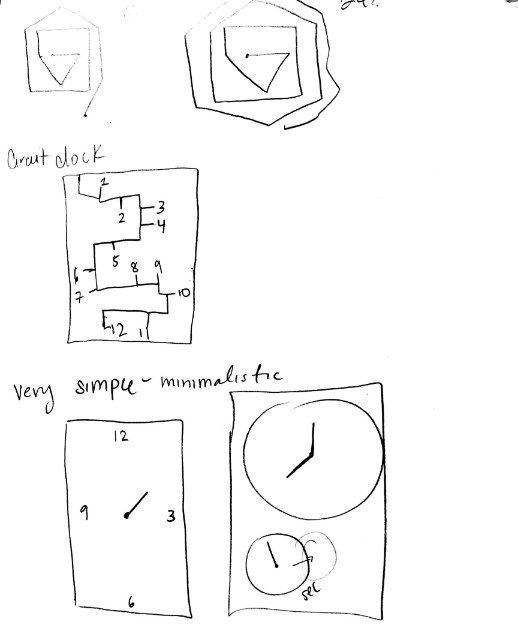 Circuit clock
1
2
3
4
5
6
8
9
7
10
12
1
very simple - minimalistic
12
9
3
6
sec